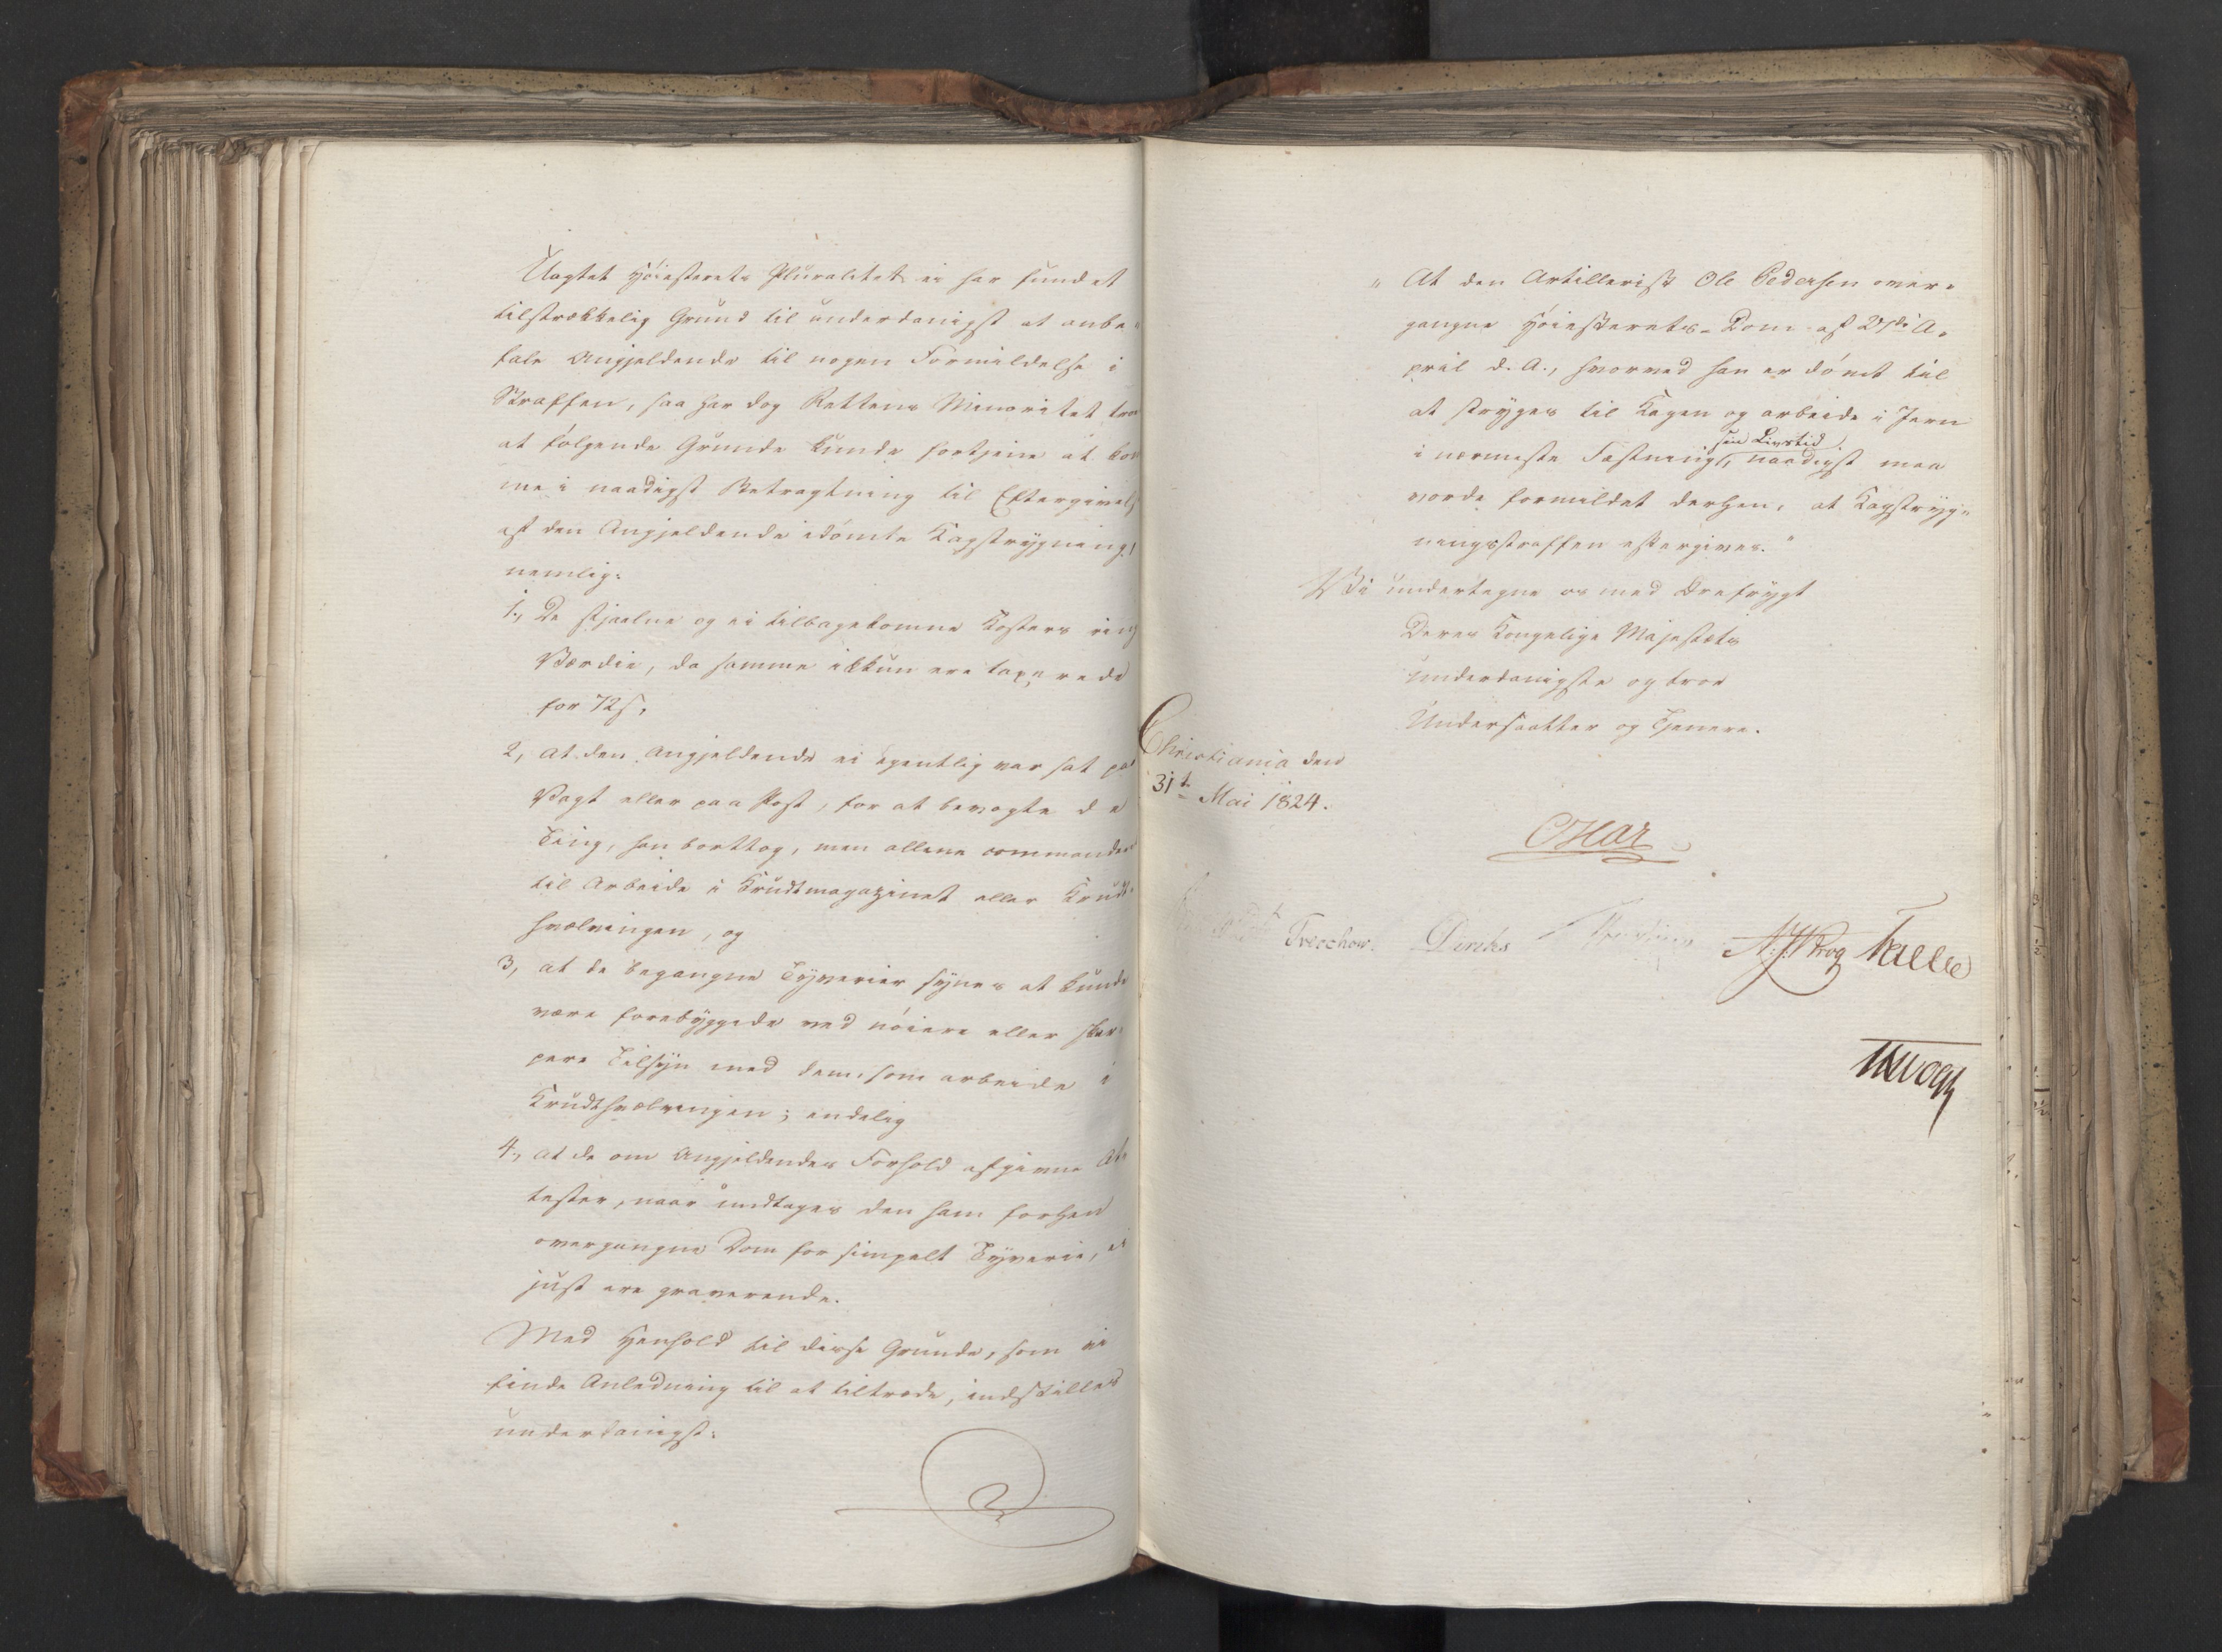 Uagtet Høiesterets Pluralitet ei har fundet
tilstrækkelig Grund til underdanigst at anbe-
fale Angjeldende til nogen Formildelse i
Straffen, saa har dog Rettens Minoritet troe
at følgende Grunde kunde fortjene at kom
me i naadigst Betragtning til Eftergivelse
af den Angjeldende idømte Kagstrygning,
nemlig:
1., De stjaalne og ei tilbagekomne Kosters ring
Værdie, da samme ikkun ere taxerede
for 72 s,
2, at den Angjeldende ei egentlig var sat paa
Vagt eller paa Post, for at bevogte de
Ting, han borttog, men allene commanderet
til Arbeide i Krudtmagazinet eller Krudt-
hvælvingen, og
3, at de begangne Tyverier synes at kunde
være forebyggede ved nøiere eller skar-
pere Tilsyn med dem, som arbeide i
Krudthvælvingen; endelig
4., at de om Angjeldendes Forhold afgivne At-
tester, naar undtages den ham forhen
overgangne Dom for simpelt Tyverie, ei
just ere graverende.
Med Henhold til disse Grunde, som vi
finde Anledning til at tiltræde, indstilles
underdanigst:
" At den Artillerist Ole Pedersen over-
gangne Høiesterets-Dom af 27de A-
pril d. A., hvorved han er dømt til
at stryges til Kagen og arbeide i Jern
sin Livstid
i nærmeste Fæstning, naadigst maa
vorde formildet derhen, at Kagstryg-
ningsstraffen eftergives."
Vi undertegne os med Ærefrygt
Deres Kongelige Majestæts
underdanigste og troe
Undersaatter og Tjenere.
Christiania den
31t Mai 1824.
Treschow. Diriks